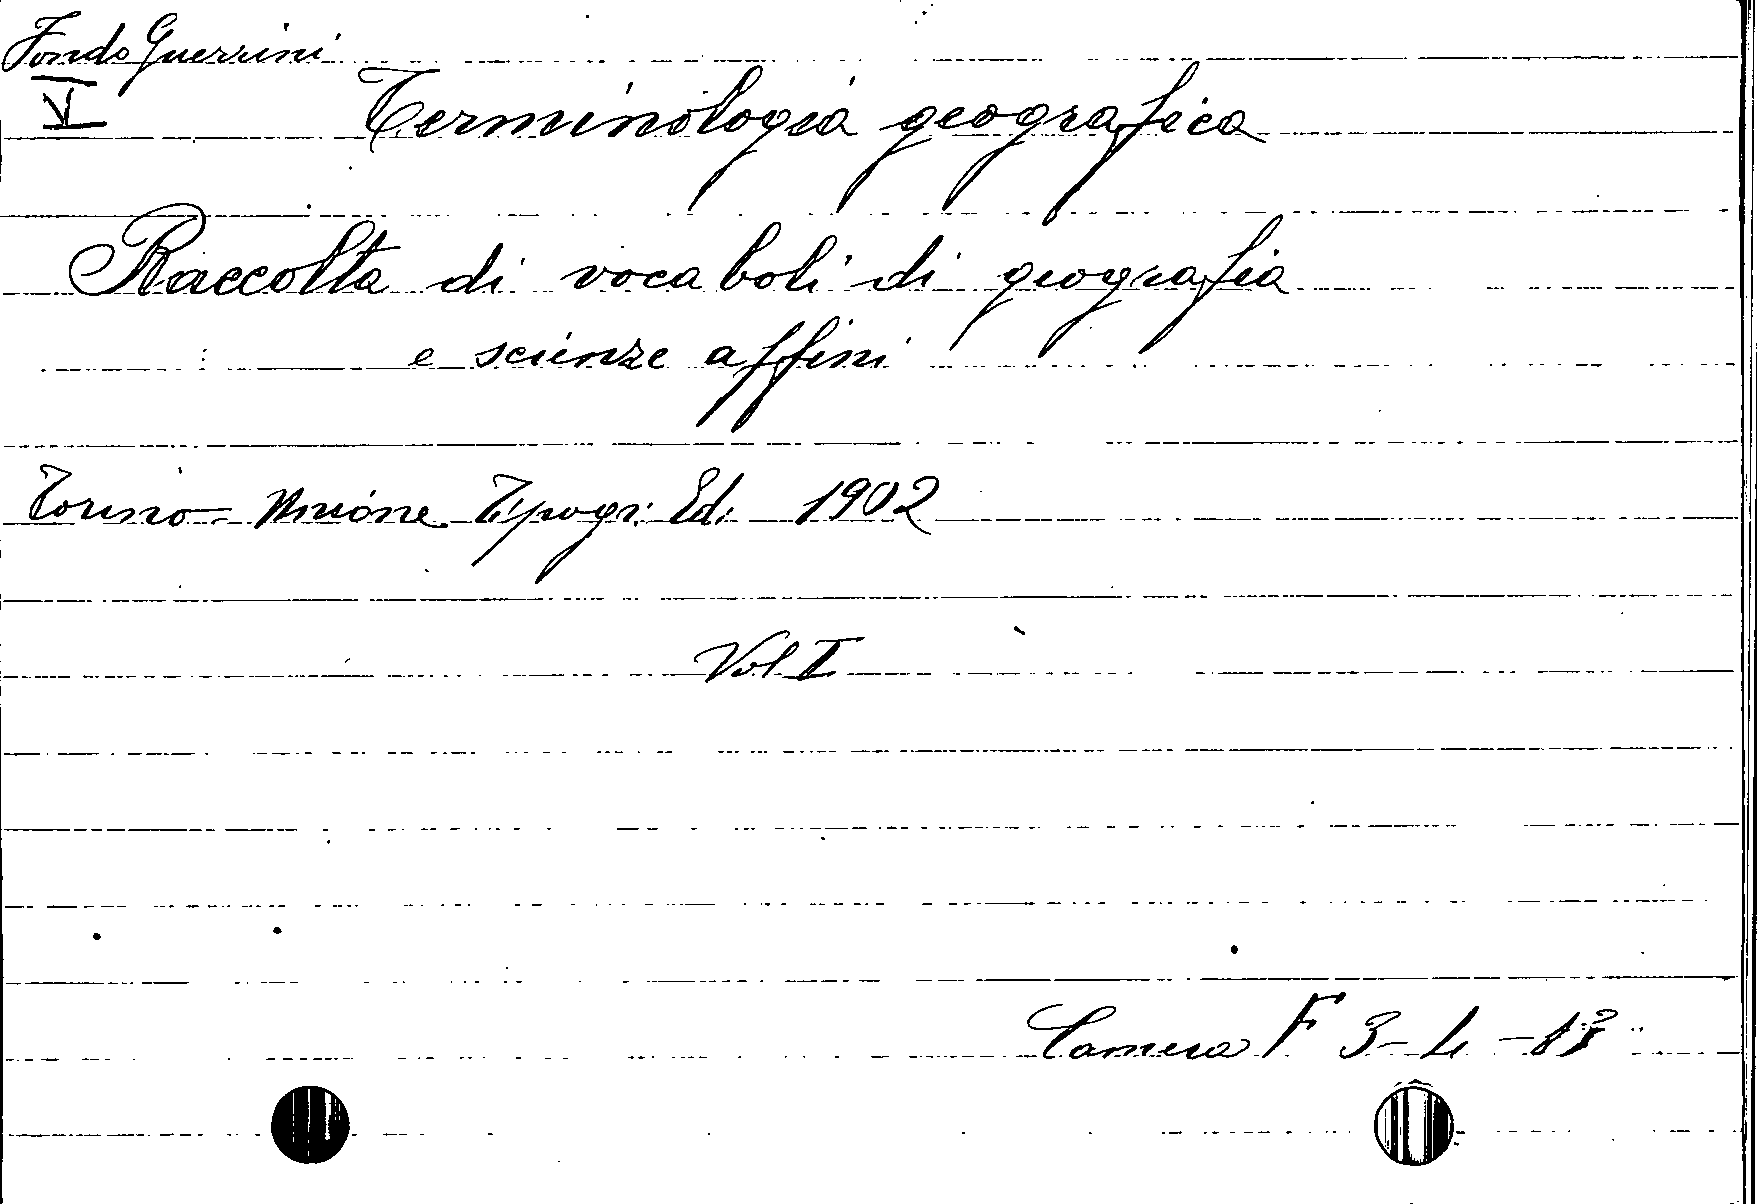 Fondo Guerrini
V
Terminologia geografica
Raccolta di vocaboli di geografia
e scienze affini
Torino - Unione Tipogr. Ed. 1902
Vol I
Camera F 3-4-